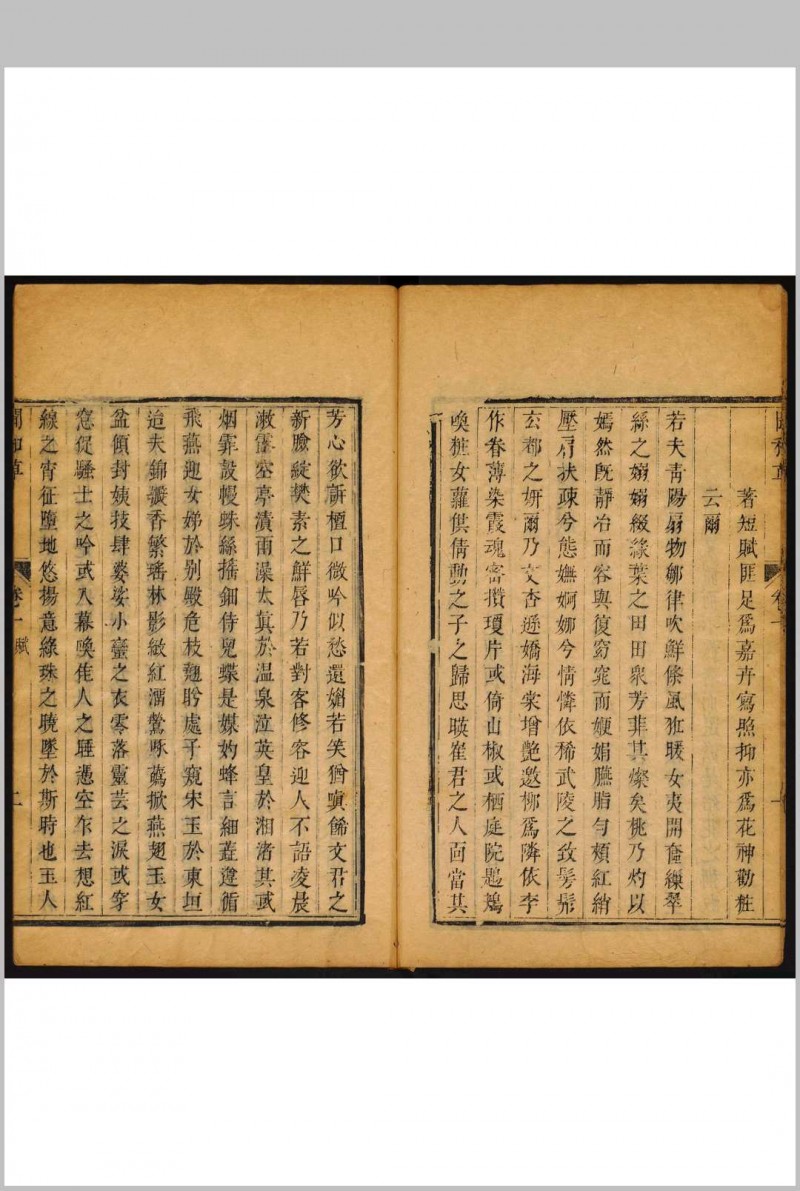 著短賦匪足爲嘉卉寫照抑亦爲花神勸粧
云爾
若夫靑陽扇物鄒律吹鮮條風狂暖女夷開奩繰翠
絲之嫋嫋綴綠葉之田田衆芳菲其燦矣桃乃灼以
嫣然旣靜冶而容與復窈窕而㛹娟臙脂勻頰紅綃
壓肩扶疎兮態嫵婀娜兮情憐依稀武陵之致髣髴
玄都之妍爾乃文杏遜嬌海棠增艶邀柳爲隣依李
作眷薄染霞魂密攢瓊片或倚山椒或栖庭院鶗鴂
喚粧女蘿供倩動之子之歸思暎崔君之人面當其
芳心欲訴檀口微吟似愁還媚若笑猶嗔儩文君之
新臉綻樊素之鮮唇乃若對客修容迎人不語凌晨
漱露空亭漬雨澡太眞於温泉泣英皇於湘渚其或
烟霏設幔蛛絲搖鈿侍兒蝶是媒妁蜂言細蕋違循
飛燕迎女娣於别殿危枝翹盻處子窺宋玉於東垣
迨夫錦瓣香繁瑤林影敏紅濡鶯咮薦掀燕翅玉女
盆傾封姨技肆婆娑小蠻之衣零落靈芸之淚或穿
窓促騷士之吟或入幕喚佳人之睡憑空乍去想紅
線之宵征墮地悠揚意綠珠之曉墜於斯時也玉人
卷一 賦
二